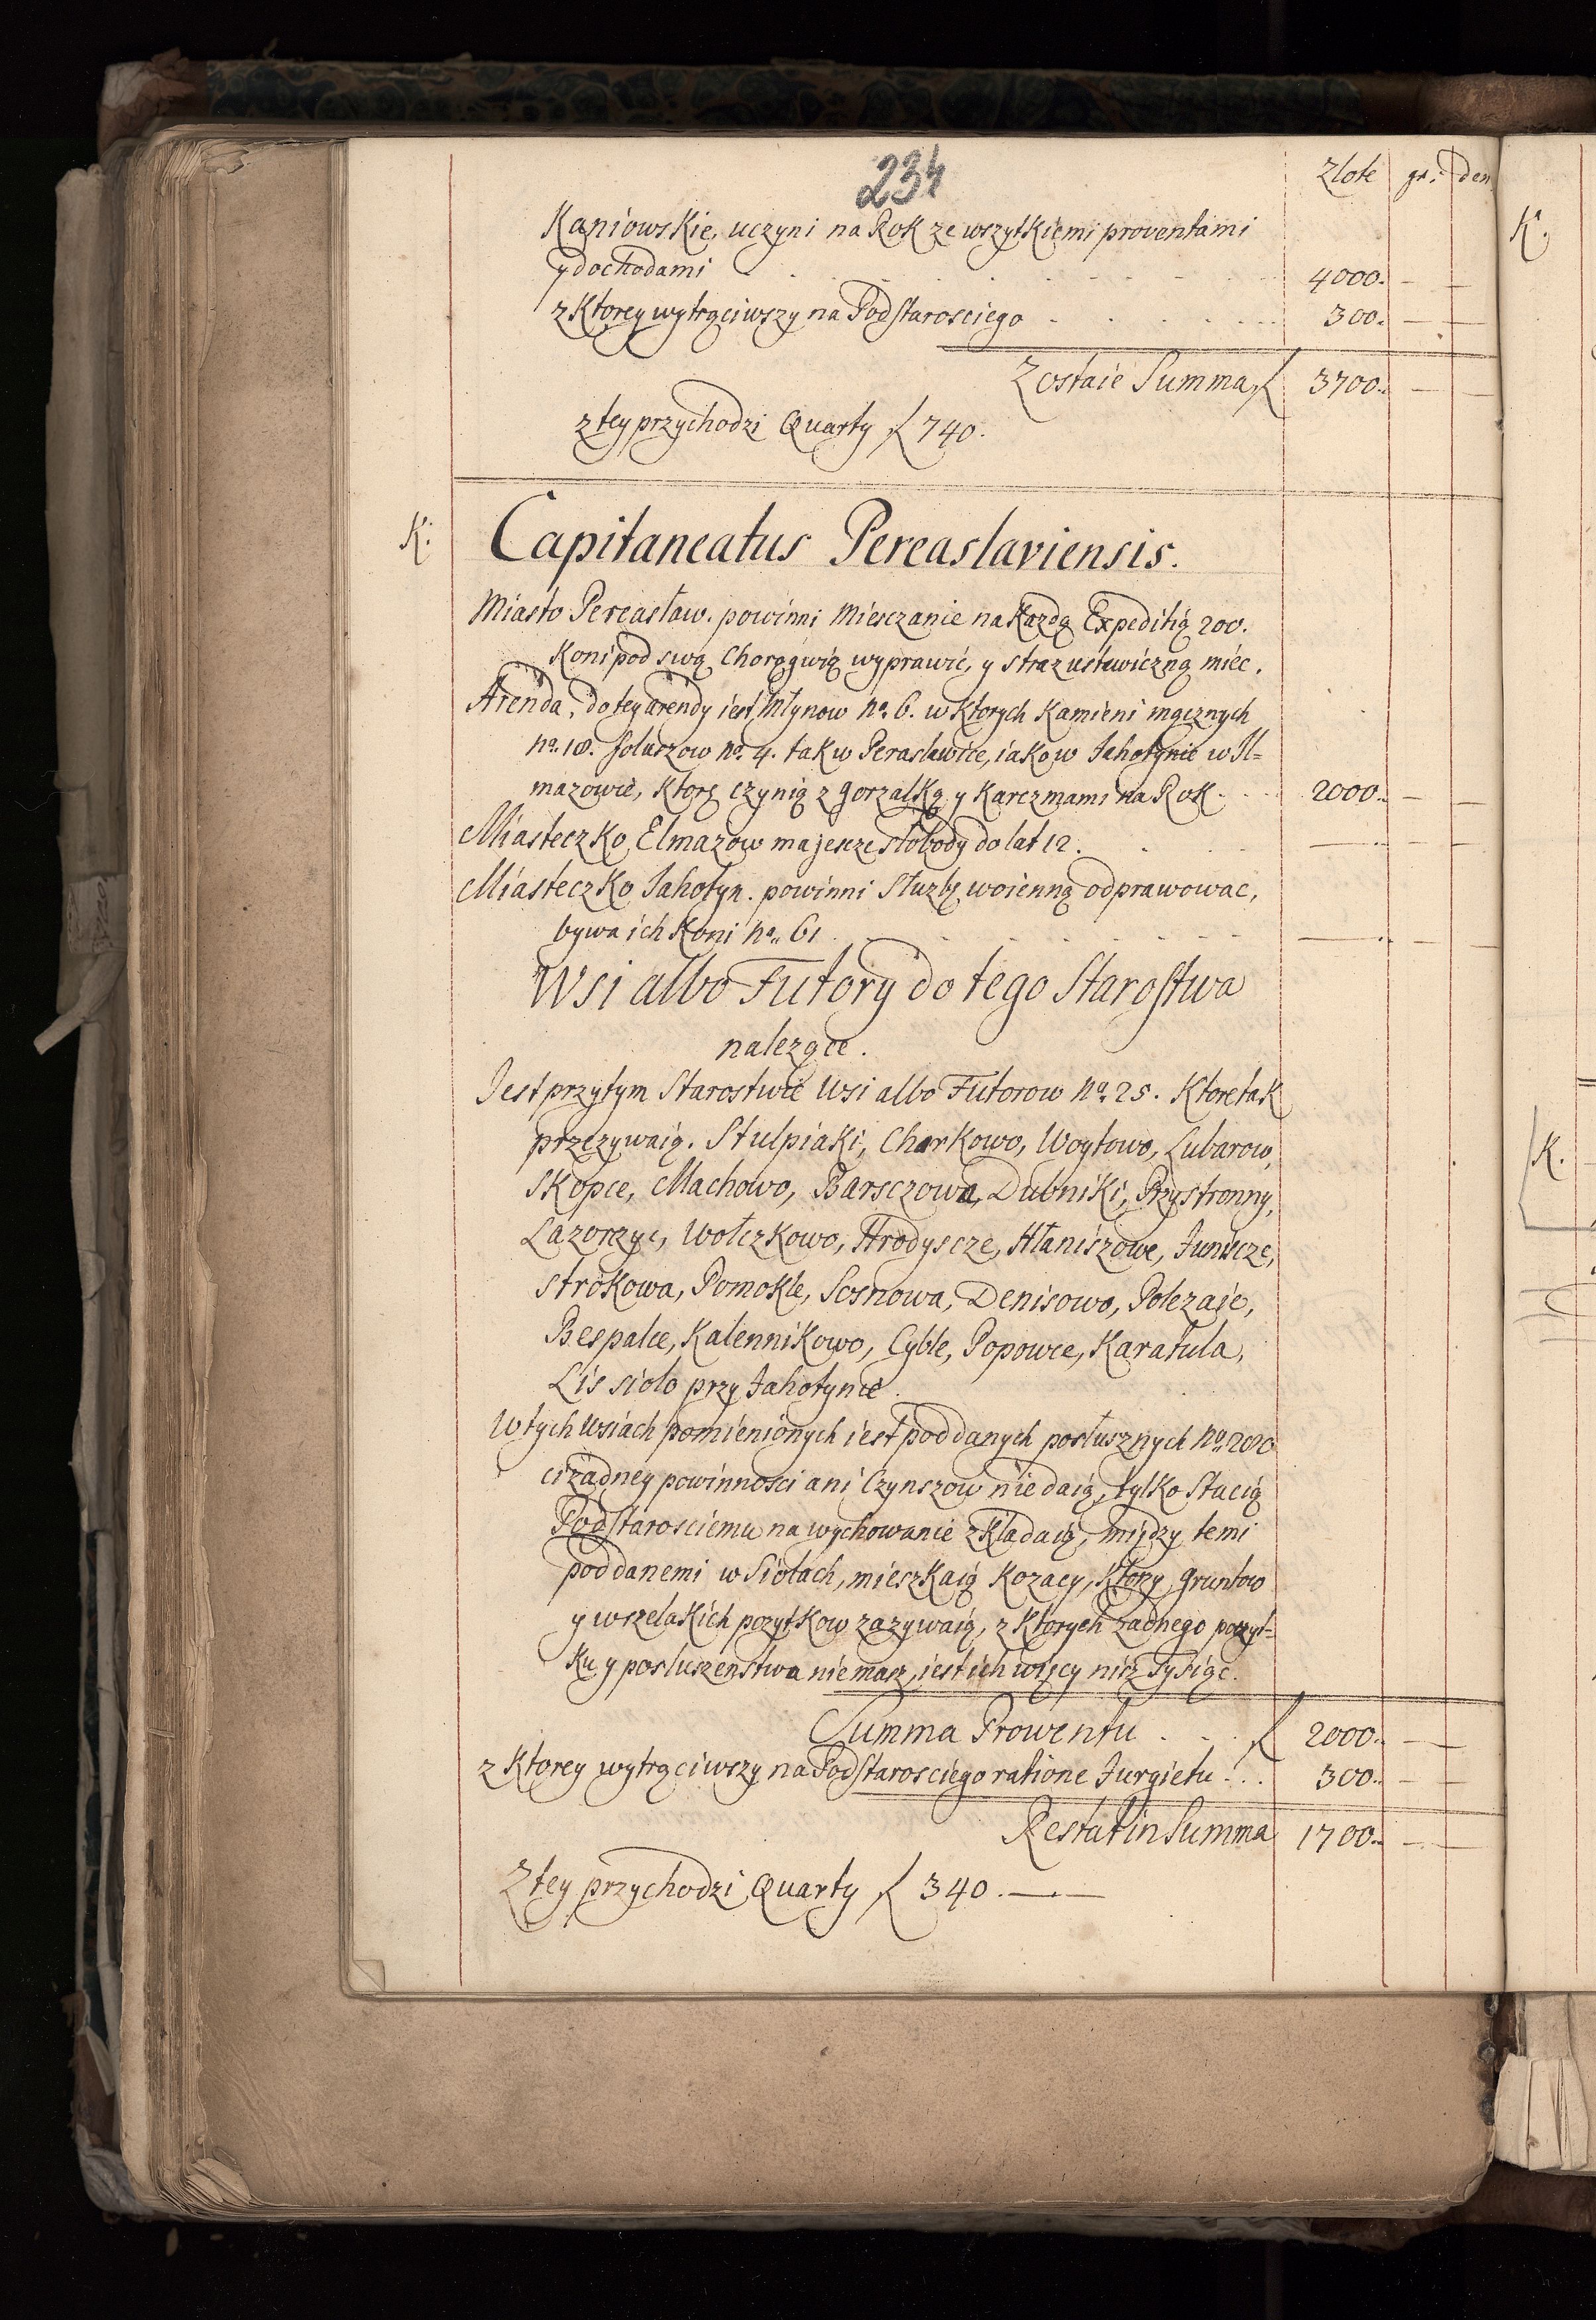 234
Zlote gr: den
Kaniowskie, uczyni na Rok ze wszytkiemi proventami
y dochodami 4000.
z Ktorey wytrąciwszy na Podstarosciego 300.
Zostaie Summa, 3700.
z tey przychodzi Quarty 740.
K: Capitaneatus Pereaslaviensis.
Miasto Pereasław. powinni Miesczanie na Kazdą Expeditią 200.
Koni pod swą Chorągwią wyprawić, y straz ustawiczną miec.
Arenda, do tey arendy iest Młynow no. 6. w Ktorych Kamieni mącznych
no. 18. foluszow no. 4. tak w Peraslawiie, iako w Jahotynie w Jl=
mazowie, Ktorę czynią z gorzałką y Karczmami na Rok 2000.
Miasteczko Elmazow ma jescze słobody do lat 12.
Miasteczko Jahotyn. powinni Służbę woienną odprawowac,
bywa ich Koni no. 61
Wsi albo Futory do tego Starostwa
nalezące.
Jest przytym Starostwie Wsi albo Futorow no. 25. Ktore tak
przezywaią. Stulpiaki, Charkowo, Woytowo, Lubarow,
Skopce, Machowo, Barsczowa, Dubniki, Przystronny,
Lazorzyc, Wołczkowo, Hrodyscze, Hłaniszowe, Juniscze,
Strokowa, Pomokle, Sosnowa, Denisowo, Polezaie,
Bespalce, Kalennikowo, Cyble, Popowce, Karatula,
Lis sioło przy Jahotynie.
W tych Wsiach pomienionych iest poddanych posłusznych no.
ci żadney powinnosci ani Czynszow nie daią, tylko Stacią
Podstarosciemu na wychowanie zkładaią, między temi
poddanemi w Siołach, mieszkaią Kozacy, Ktorzy gruntow
y wszelakich pozytkow zazywaią, z Ktorych zadnego pozyt=
ku y posłuszenstwa niemasz, iest ich więcy niż Tysiąc.
Summa Prowentu 2000.
z Ktorey wytrąciwszy na Podstarosciego ratione Jurgieltu 300.
Restat in Summa 1700.
Z tey przychodzi Quarty 340.
K.
K.